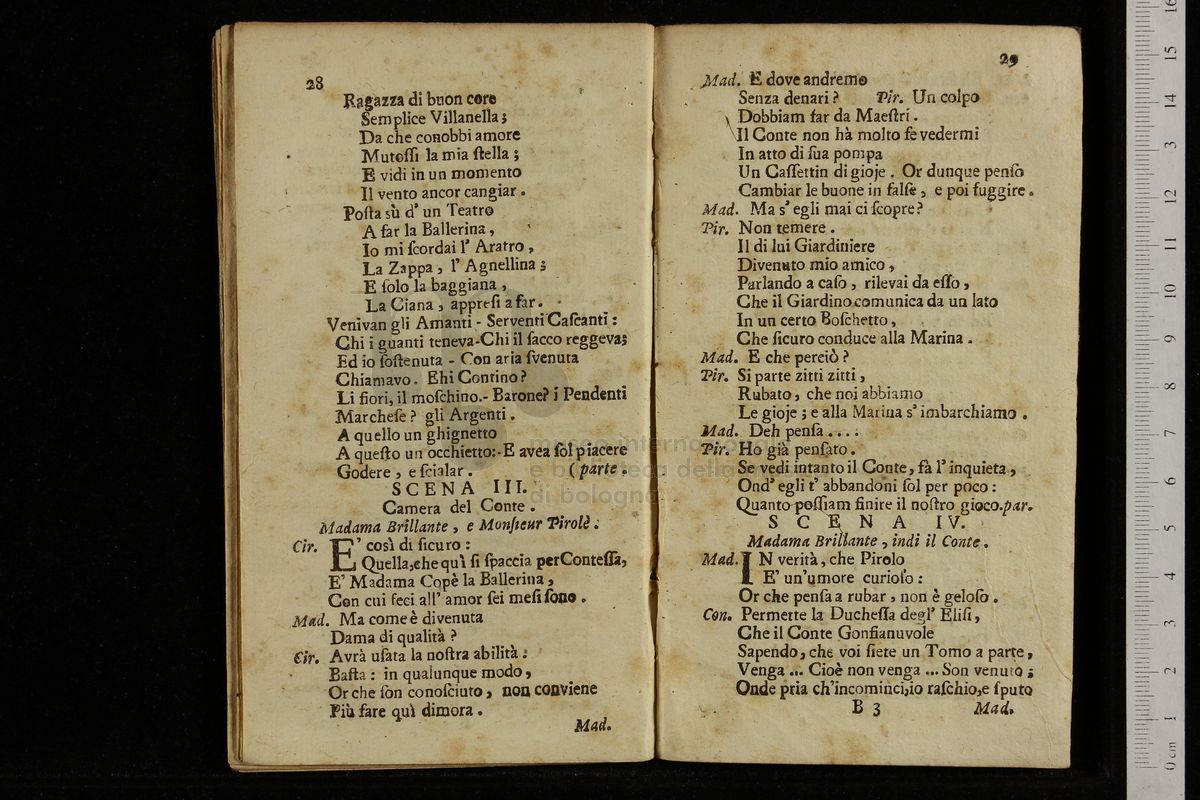 28
Ragazza di buon core
Semplice Villanella;
Da che conobbi amore
Mutoſſi la mia ſtella;
E vidi in un momento
Il vento ancor cangiar.
Poſta sù d' un Teatro
A far la Ballerina,
Io mi ſcordai l' Aratro,
La Zappa, l' Agnellina;
E ſolo la baggiana,
La Ciana, appreſi a far.
Venivan gli Amanti - Serventi Caſcanti:
Chi i guanti teneva-Chi il ſacco reggeva;
Ed io ſoſtenuta - Con aria ſvenuta
Chiamavo. Ehi Contino?
Li fiori, il moſchino.- Barone? i Pendenti
Marcheſe? gli Argenti.
A quello un ghignetto
A queſto un occhietto:-E avea ſol piacere
Godere, e ſcialar. (parte.
SCENA III.
Camera del Conte.
Madama Brillante, e Monſieur Pirolè.
Cir. E' così di ſicuro:
Quella,che quì ſi ſpaccia per Conteſſa,
E' Madama Copè la Ballerina,
Con cui feci all' amor ſei meſi ſono.
Mad. Ma come è divenuta
Dama di qualità?
Cir. Avrà uſata la noſtra abilità:
Baſta: in qualunque modo,
Or che ſon conoſciuto, non conviene
Più fare quì dimora.
Mad.
29
Mad. E dove andremo
Senza denari? Pir. Un colpo
Dobbiam far da Maeſtri.
Il Conte non hà molto fe vedermi
In atto di ſua pompa
Un Caſſettin di gioje. Or dunque penſo
Cambiar le buone in falſe, e poi fuggire.
Mad. Ma s' egli mai ci ſcopre?
Pir. Non temere.
Il di lui Giardiniere
Divenuto mio amico,
Parlando a caſo, rilevai da eſſo,
Che il Giardino comunica da un lato
In un certo Boſchetto,
Che ſicuro conduce alla Marina.
Mad. E che perciò?
Pir. Si parte zitti zitti,
Rubato, che noi abbiamo
Le gioje; e alla Marina s' imbarchiamo.
Mad. Deh penſa....
Pir. Ho già penſato.
Se vedi intanto il Conte, fà l' inquieta,
Ond' egli t' abbandoni ſol per poco:
Quanto poſſiam finire il noſtro gioco.par.
SCENA IV.
Madama Brillante, indi il Conte.
Mad. IN verità, che Pirolo
E' un'umore curioſo:
Or che penſa a rubar, non è geloſo.
Con. Permette la Ducheſſa degl' Eliſi,
Che il Conte Gonfianuvole
Sapendo, che voi ſiete un Tomo a parte,
Venga ... Cioè non venga ... Son venuto;
Onde pria ch'incominci,io raſchio,e ſputo
B 3 Mad.
museo internazionale
e biblioteca della
di bologna
0 cm 1 2 3 4 5 6 7 8 9 10 11 12 13 14 15 16